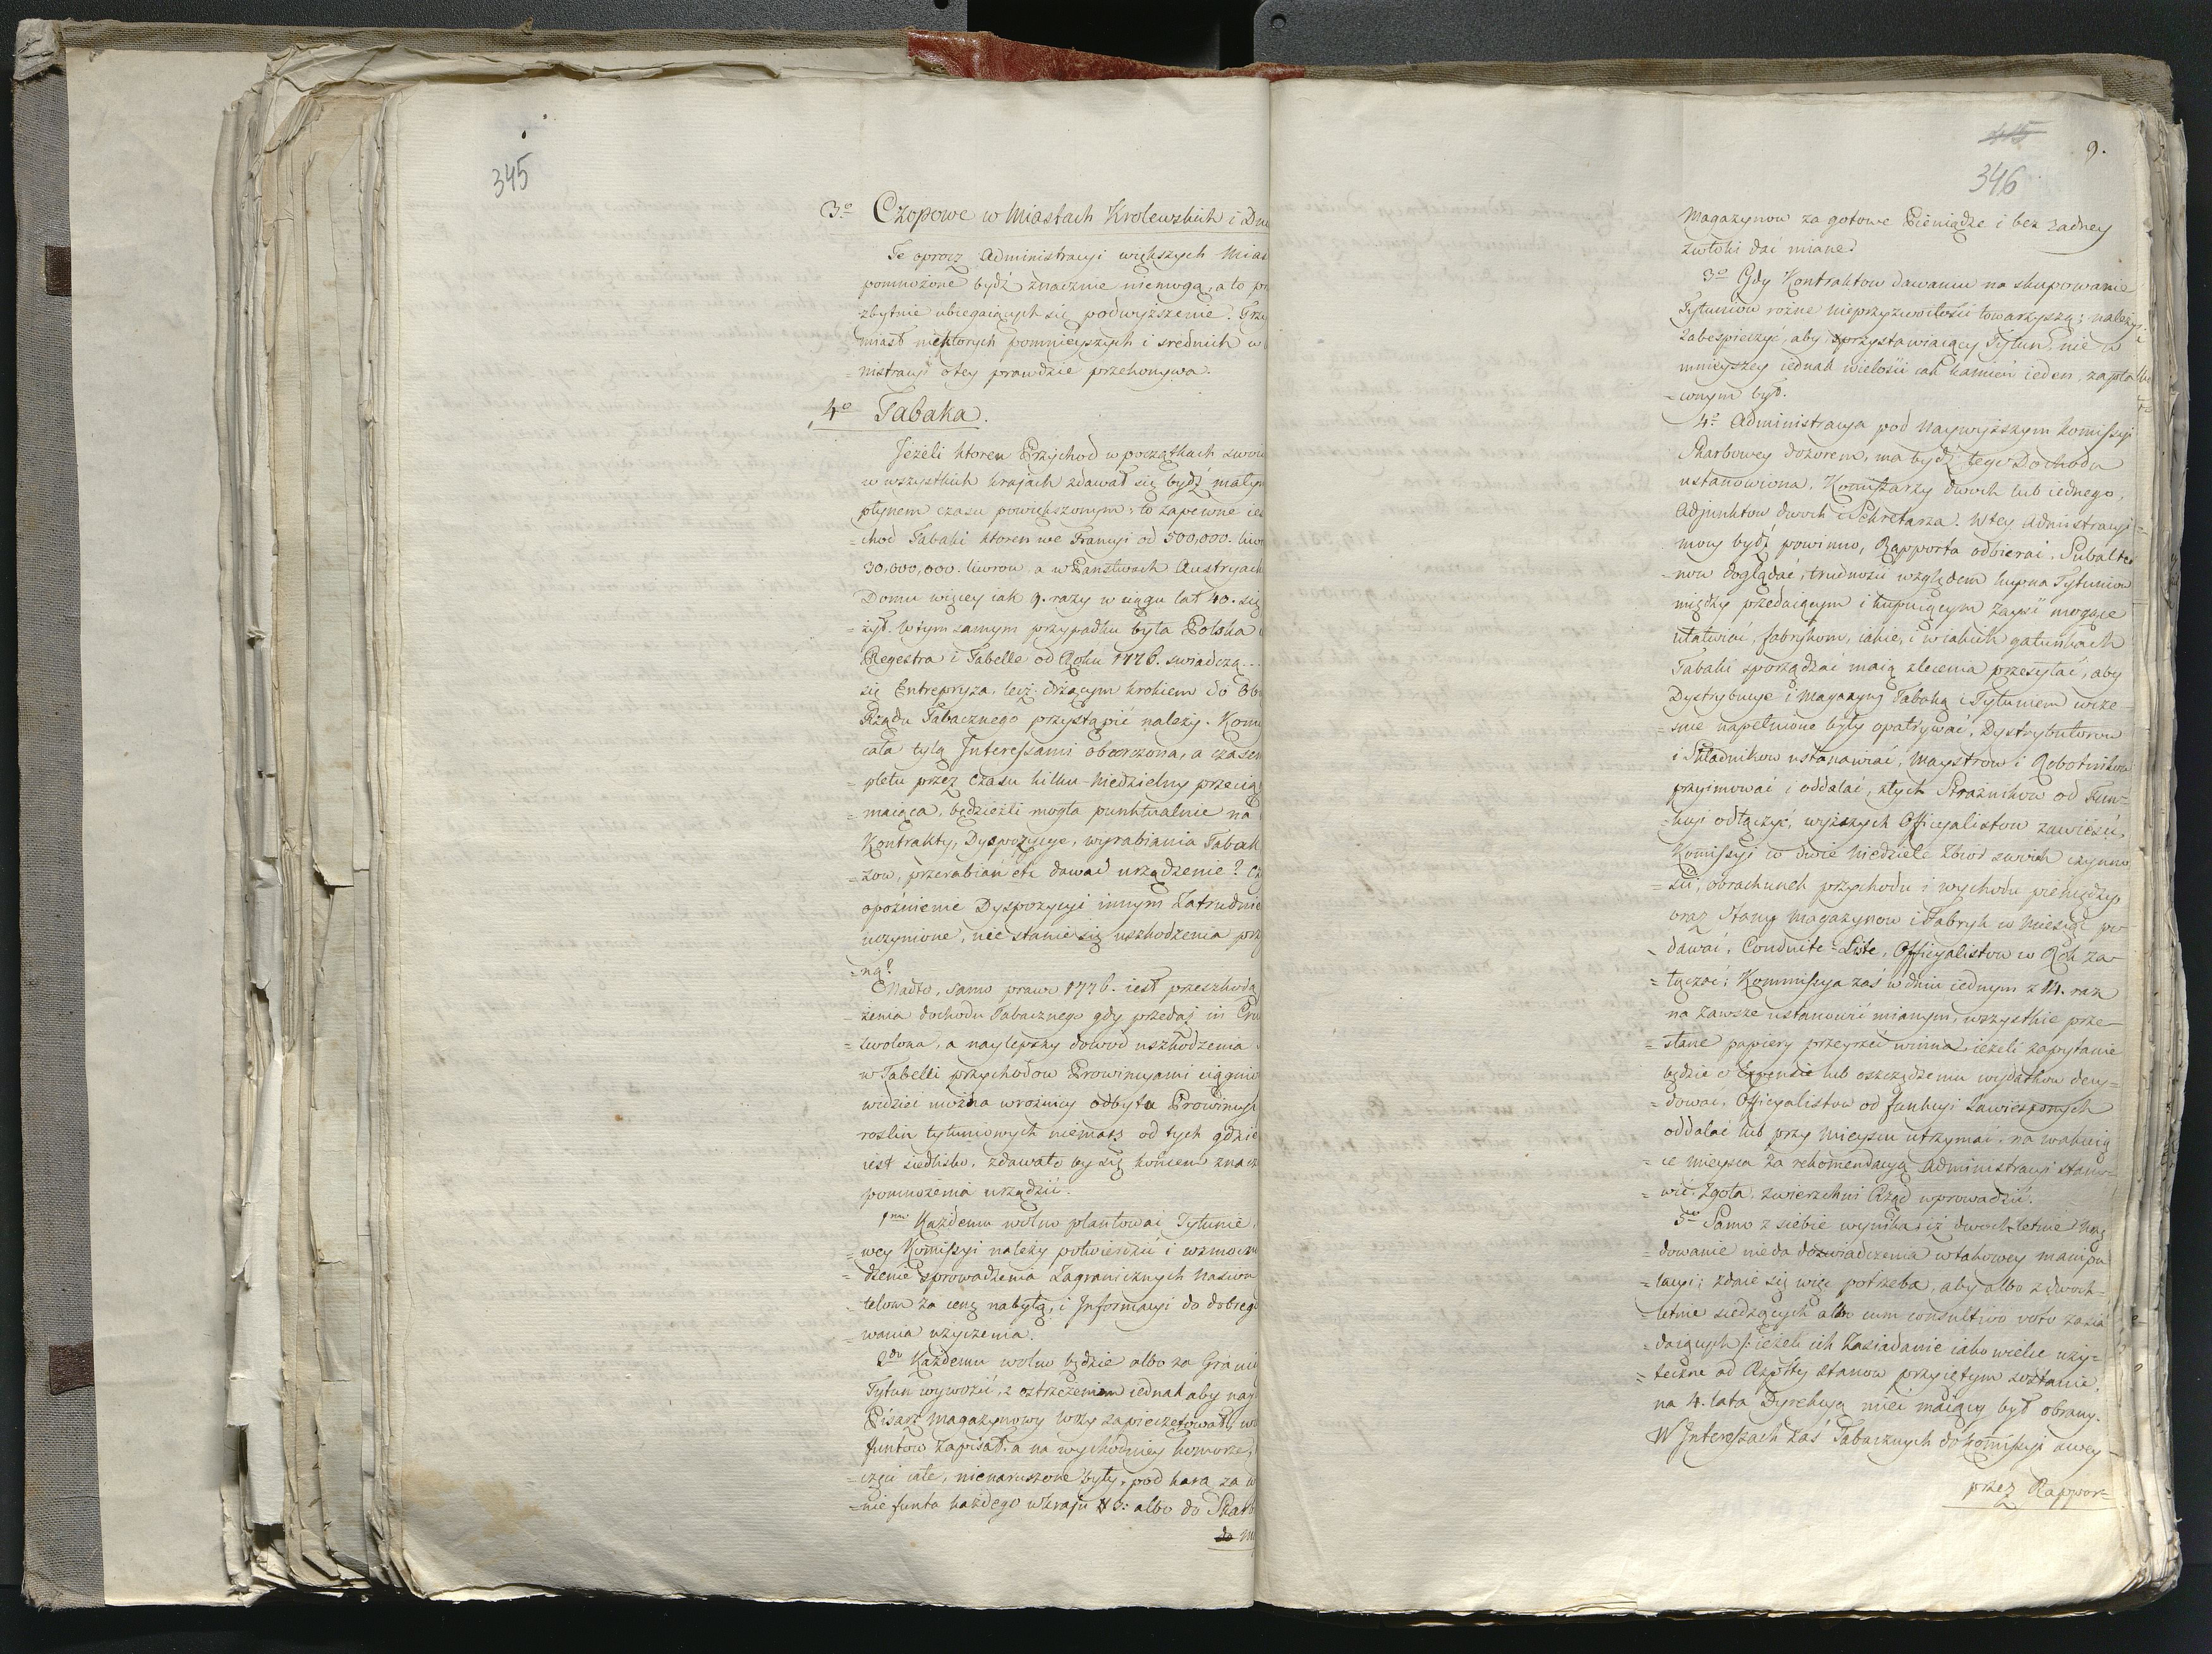 345
3º Czopowe w Miastach Krolewskich i
Te oprocz Administracyi większych Mias
pomnożone bydź znacznie niemogą, a to
zbytnie ubiegaiących się podwyższenie.
miast niektorych pomnieyszych i srednich w
=nistracyi o tey prawdzie przekonywa.
4º Tabaka.
Jeżeli ktoren Przychod w początkach swou
w wszystkich krajach zdawał się bydź małym
płynem czasu powiększonym, to zapewne ies
=chod Tabaki ktoren we Francyi od 500,000. liw
30,000,000. liwrow a w Panstwach Austryach
Domu więcey iak 9. razy w ciągu lat 40. się
=żył. W tym samym przypadku była Polska
Regestra i Tabelle od Roku 1776. swiadczą
się Entrepryza, lecz drżącym krokiem do
Rządu Tabacznego przystąpić należy. Kom
cała tylą Interessami obarczona, a czasem
=pletu przez czasu kilku-Niedzielny przeciąg
=maiąca, będzieżli mogła punktualnie na
Kontrakty, Dyspozycye, wyrabiania Tabak
=zow, przerabian etc dawać urządzenie?
opoźnienie Dyspozycyi innym Zatrudnie
uczynione, nie stanie się uszkodzenia prz
=ną?
Nadto, samo prawo 1776. iest przeszkodą
żenia dochodu Tabacznego gdy przedaż in Cru
=zwolona, a naylepszy dowod uszkodzenia
w Tabelli przychodow Prowincyami ciągnio
widzieć można w rożnicy odbytu Prowincyi
roslin tytuniowych niemasz od tych gdzie
iest siedlisko. Zdawało by się koncem znacz
pomnożenia urządzić.
1mo Każdemu wolno plantować Tytunie
=wey Komissyi należy potwierdzić i wzmocni
=dzenie sprowadzenia Zagranicznych Nasion
=telom za cenę nabytą, i Informacyi do dobrego
=wania użyczenia.
2do Każdemu wolno będzie albo za Granic
Tytun wywozić, z ostrzeżeniem iednak aby nay
Pisarz Magazynowy wozy zapieczętował, w
funtow zapisał, a na wychodniey komorze,
=częci całe, nienaruszone były, pod karą za
=nie funta każdego w kraju 8: albo do Skarb
do M
415
9.
346
Magazynow za gotowe Pieniądze i bez żadney
zwłoki dać miane.
3º Gdy Kontraktow dawaniu na skupowanie
Tytuniow rożne nieprzyzwoitości towarzyszą; należy
zabespieczyć, aby przystawiaiący Tytun, nie w
mnieyszey iednak wielości iak kamien ieden, zapła
=conym był.
4º Administracya pod Naywyższym Komissyi
Skarbowey dozorem, ma bydź tego Dochodu
ustanowiona. Komissarzy dwoch lub iednego,
Adjunktow dwoch i Sekretarza. W tey Administracyi
mocy bydź powinno, Rapporta odbierać, Subalter
=now doglądać, trudności względem kupna Tytuniow
między przedaiącym i kupuiącym zayść mogące
ułatwiać, fabrykom, iakie, i w iakich gatunkach
Tabaki sporządzać maią zlecenia przesyłać, aby
Dystrybucye i Magazyny Tabaką i Tytuniem wcze=
=snie napełnione były opatrywać, Dystrybutorow
i Składnikow ustanawiać, Maystrow i Robotnikow
przyimować i oddalać, złych Strażnikow od Funk=
=kcyi odłączyć, wyższych Officyalistow zawiesić,
Komissyi co dwie Niedziele Zbior swoich czynno
=ści, obrachunek przychodu i wychodu pieniędzy
oraz Stany Magazynow i Fabryk w Miesiąc po
dawać, Conduite=Liste, Officyalistow w Rok za
=łączać; Kommissya zaś w dniu iednym z 14. raz
na zawsze ustanowić mianym, wszystkie prze=
=słane papiery przeyrzeć winna, ieżeli zapytanie
będzie o Expensie lub oszczędzeniu wydatkow decy=
=dować, Officyalistow od funkcyi zawieszonych
oddalać lub przy mieyscu utrzymać, na wakuią
=ce mieysca za rekomendacyą Administracyi stano=
=wić. Zgoła, zwierzchni Rząd wprowadzić.
5to Samo z siebie wynika iż dwoch-letnie Urzę
=dowanie nie da doswiadczenia w takowey manipu
=lacyi; zdaie się więc potrzeba, aby albo z dwoch=
=letnie siedzących albo cum consultivo voto zasia
=daiących, ieżeli ich Zasiadanie iako wielce uży=
=teczne od Rzpltey Stanow przyiętym zostanie,
na 4. lata Dyrekcyą mieć maiący był obrany.
W Interessach zaś Tabacznych do Komissyi owey
przez Rappor=